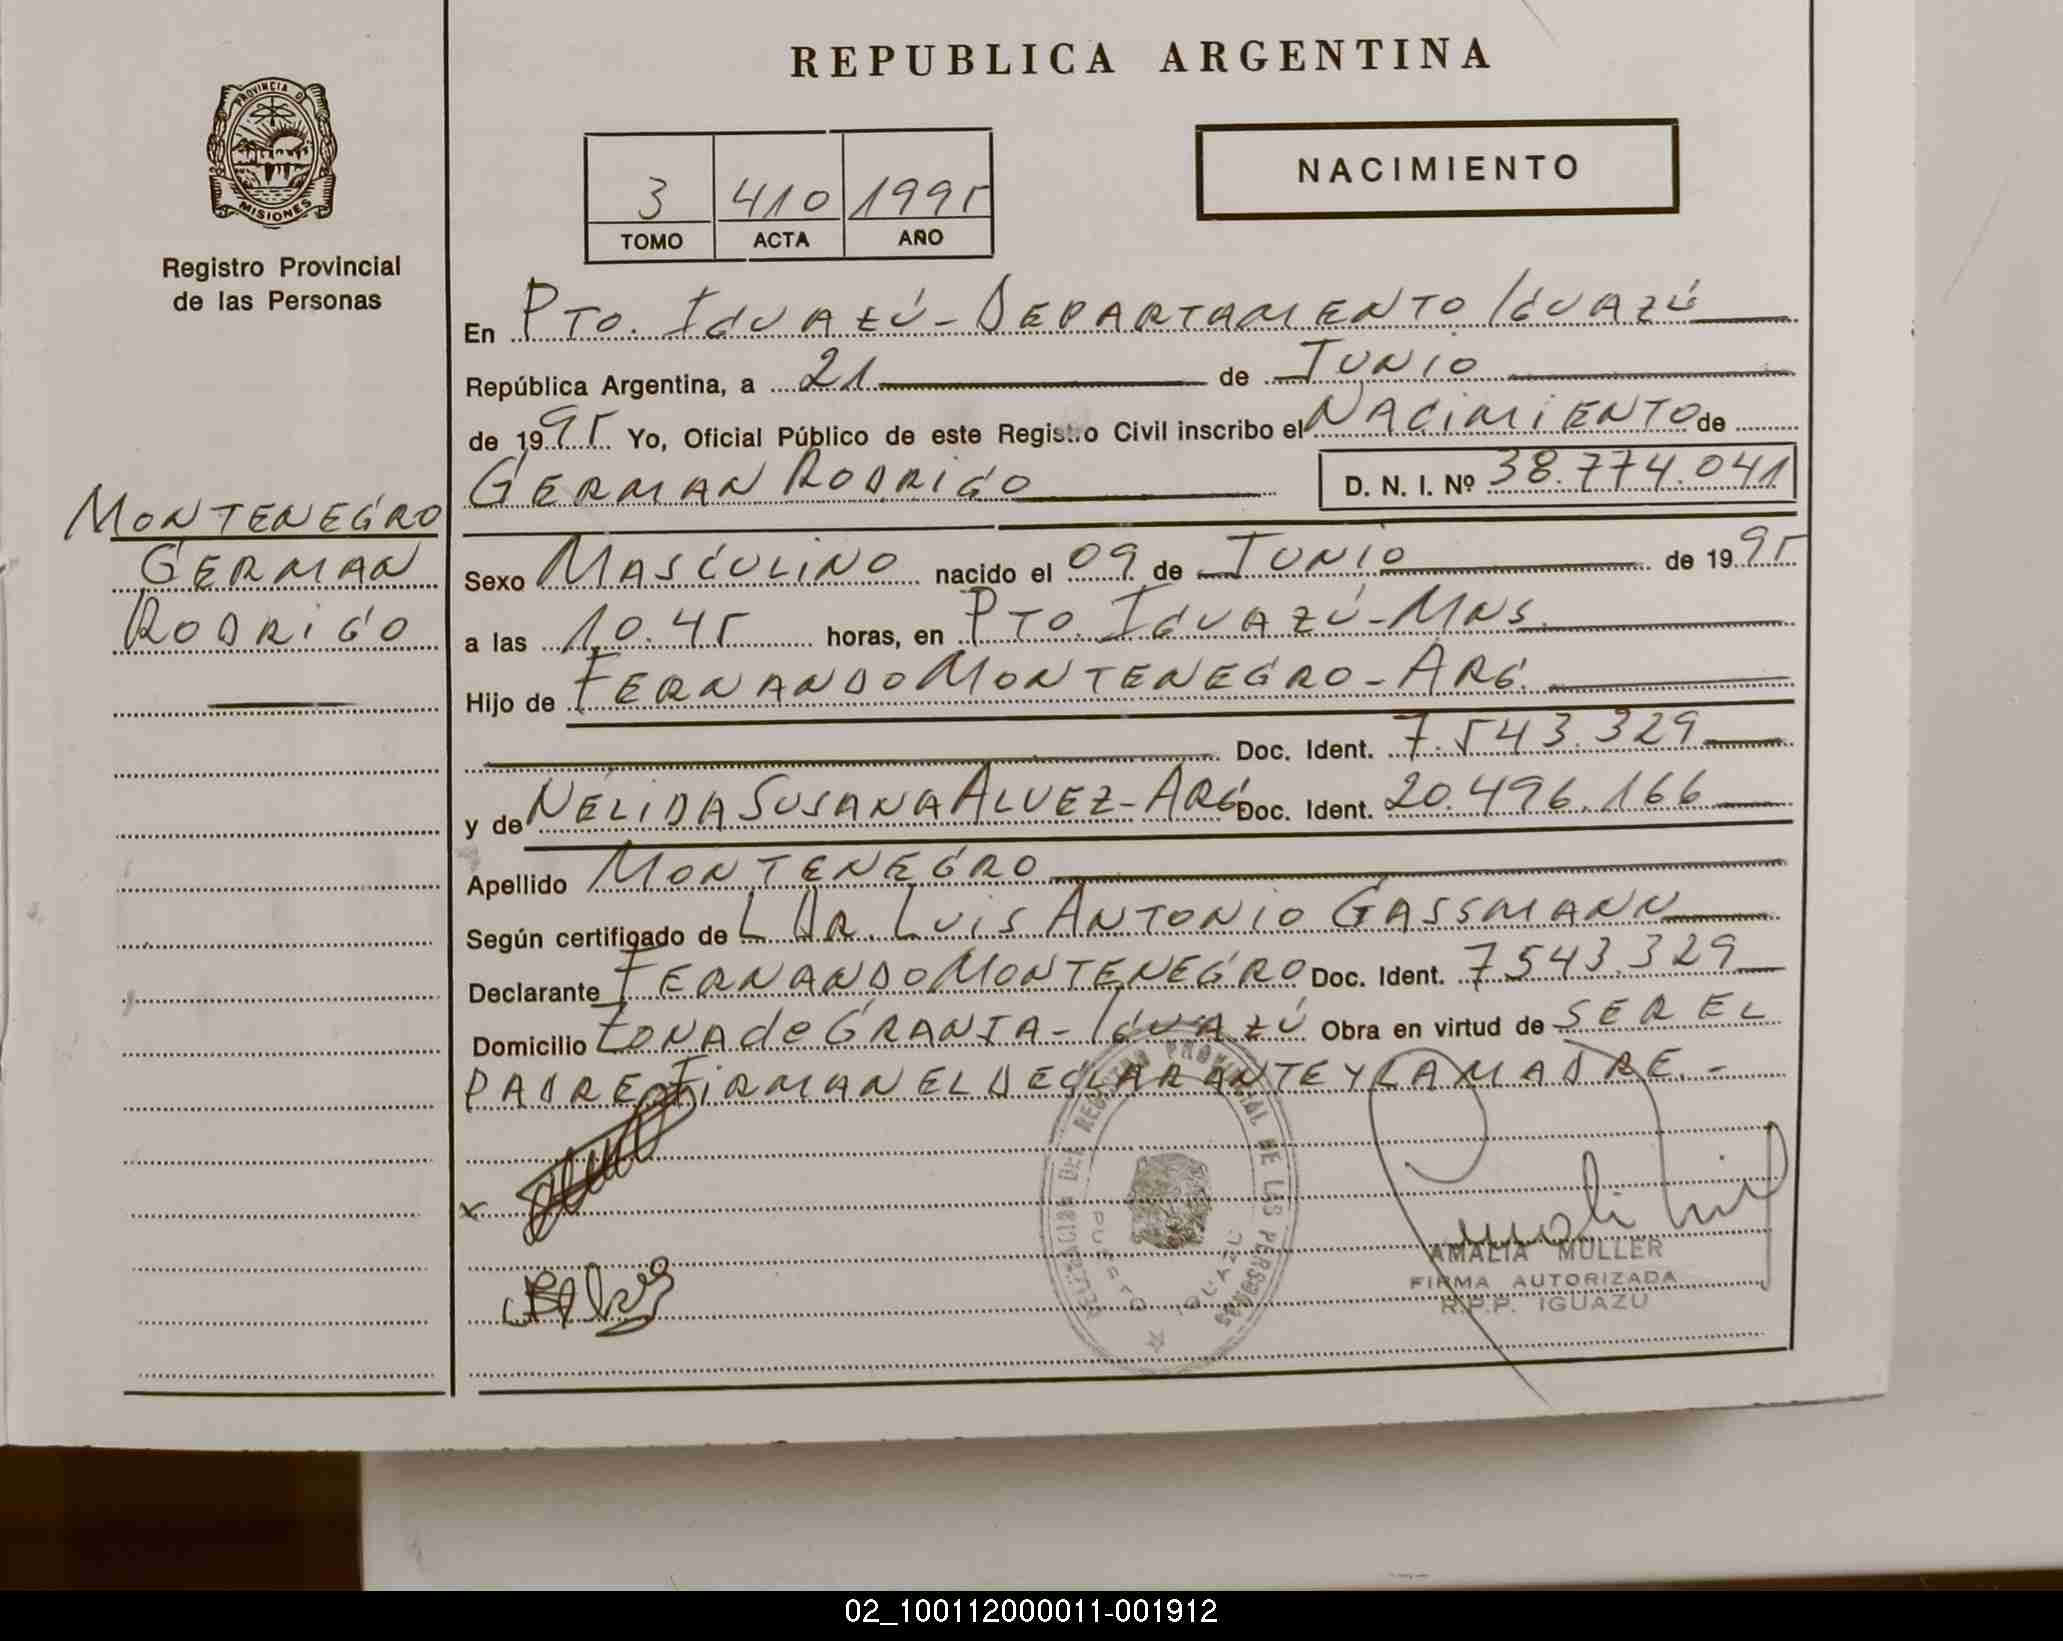 REPUBLICA ARGENTINA
PROVINCIA DE
MISIONES
Registro Provincial
de las Personas
NACIMIENTO
3 410 1995
TOMO ACTA AÑO
En Pto. Iguazú - Departamento Iguazú
República Argentina, a 21 de Junio
de 1995 Yo, Oficial Público de este Registro Civil inscribo el Nacimiento de
German Rodrigo D. N. I. Nº 38.774.041
Montenegro
German
Rodrigo
Sexo Masculino nacido el 09 de Junio de 1995
a las 10.45 horas, en Pto. Iguazú - Mns.
Hijo de Fernando Montenegro - Arg.
Doc. Ident. 7.543.329
y de Nélida Susana Alvez - Arg Doc. Ident. 20.496.166
Apellido Montenegro
Según certificado de L Dr. Luis Antonio Gassmann
Declarante Fernando Montenegro Doc. Ident. 7543.329
Domicilio Zona de Granja - Iguazú Obra en virtud de ser el
padre Firman el declarante y la madre. -
x
DEL REGISTRO PROVINCIAL DE LAS PERSONAS
PUERTO IGUAZU
AMALIA MULLER
FIRMA AUTORIZADA
R.P.P. IGUAZU
02_100112000011-001912